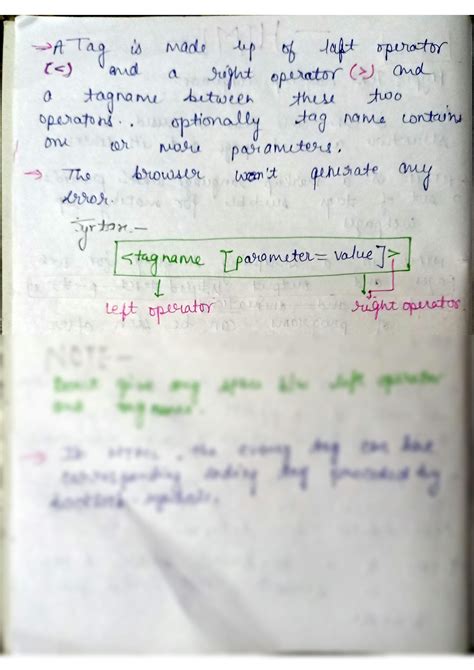 → A Tag is made up of left operator
(<) and a right operator (>) and
a tagname between these two
operators.. optionally tag name contains
one or more parameters.
→ The browser won't generate any
error.
Syntax:-
<tagname [parameter = value]>
left operator right operator
NOTE:-
Don't give any space b/w left operator
and tagname.
the every tag can have
corresponding ending tag preceded by